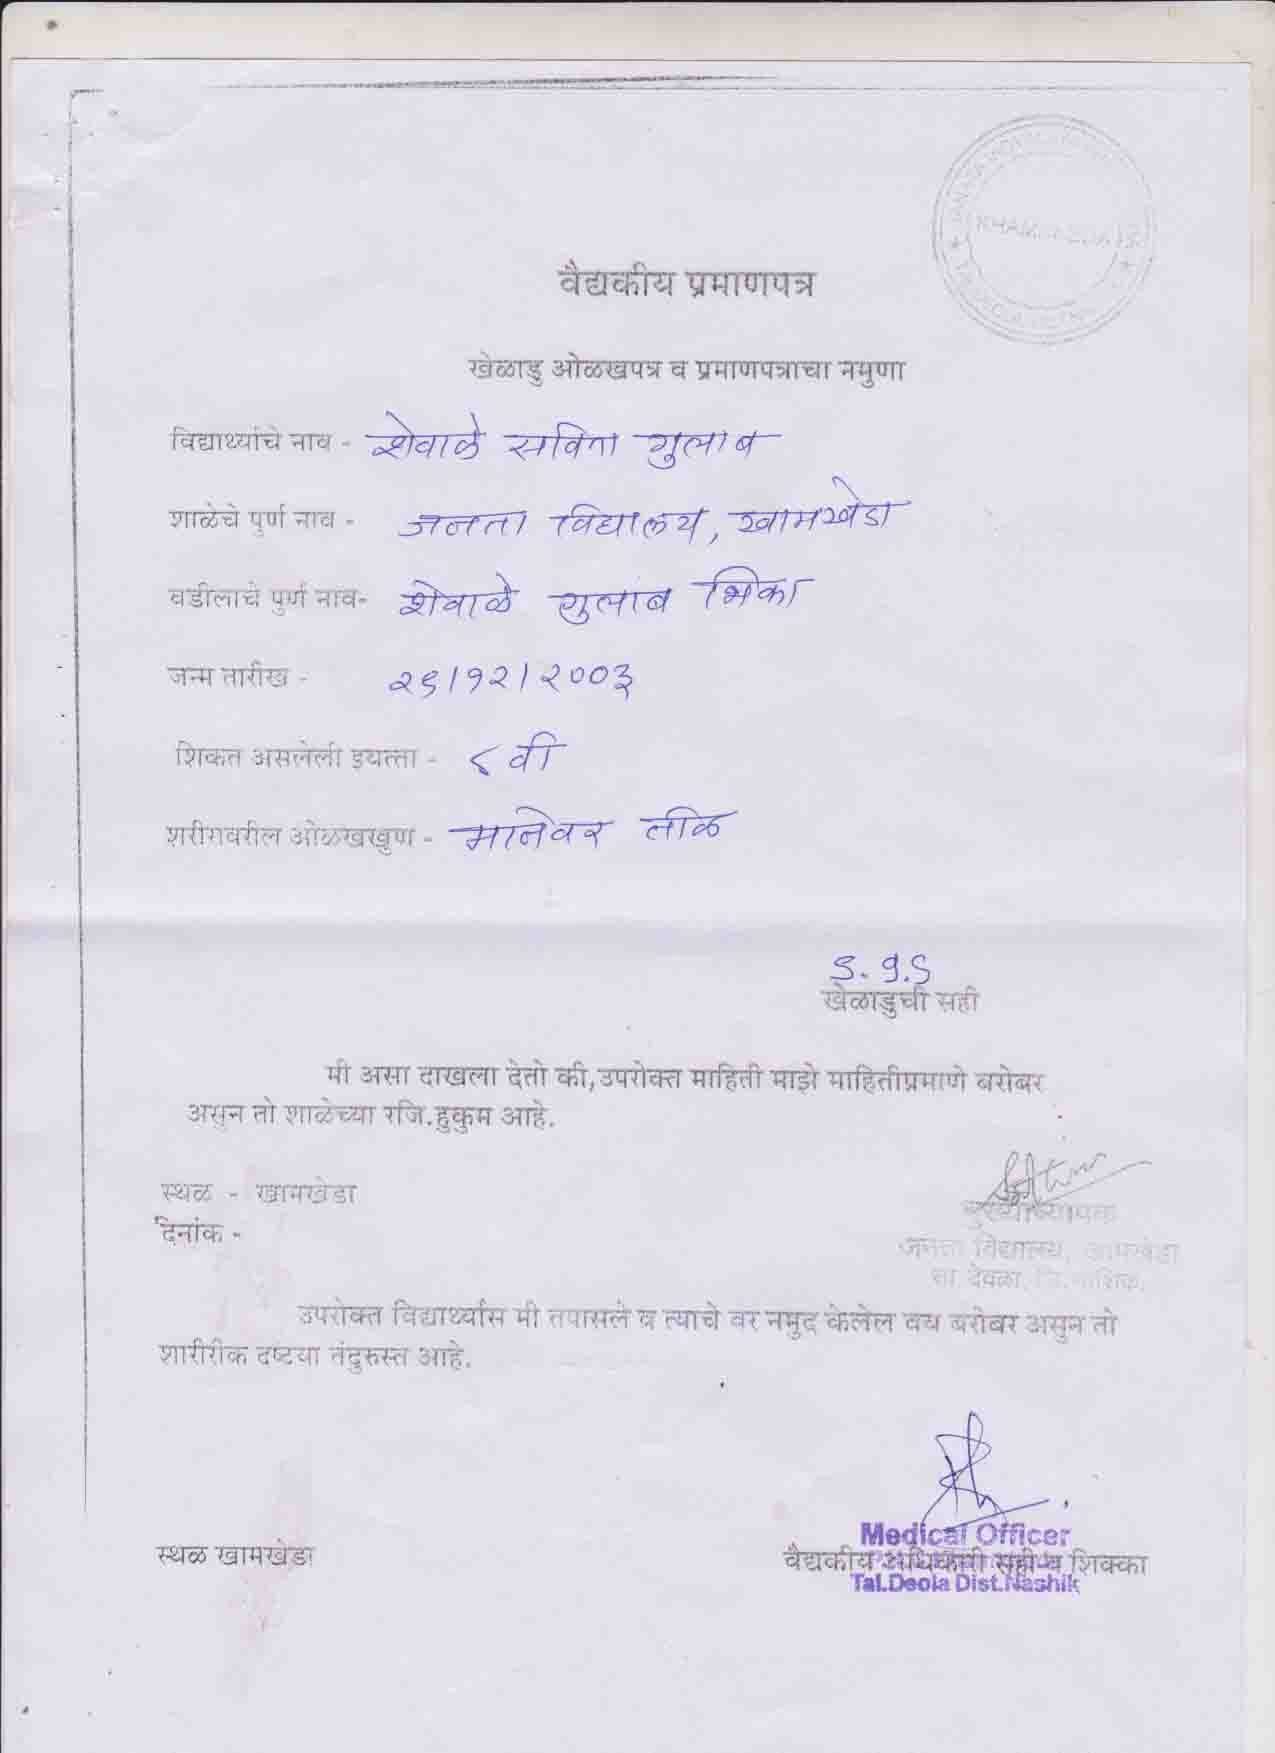 वैद्यकीय प्रमाणपत्र
खेळाडु ओळखपत्र व प्रमाणपत्राचा नमुणा
विद्यार्थ्याचे नाव - शेवाळे सविता गुलाब
शाळेचे पुर्ण नाव - जनता विद्यालय, खामखेडा
वडीलाचे पुर्ण नाव- शेवाळे गुलाब भिका
जन्म तारीख - २६/१२/२००३
शिकत असलेली इयत्ता - ८ वी
शरीरावरील ओळखखुण - मानेवर तीळ
S. g. S
खेळाडुची सही
मी असा दाखला देतो की,उपरोक्त माहिती माझे माहितीप्रमाणे बरोबर
असुन तो शाळेच्या रजि.हुकुम आहे.
स्थळ - खामखेडा
दिनांक -
मुख्याध्यापक
जनता विद्यालय, खामखेडा
ता. देवळा, जि.नाशिक.
उपरोक्त विद्यार्थ्यास मी तपासले व त्याचे वर नमुद केलेल वय बरोबर असुन तो
शारीरीक दष्टया तंदुरुस्त आहे.
Medical Officer
स्थळ खामखेडा
वैद्यकीय अधिकारी सही व शिक्का
Tal.Deola Dist.Nashik